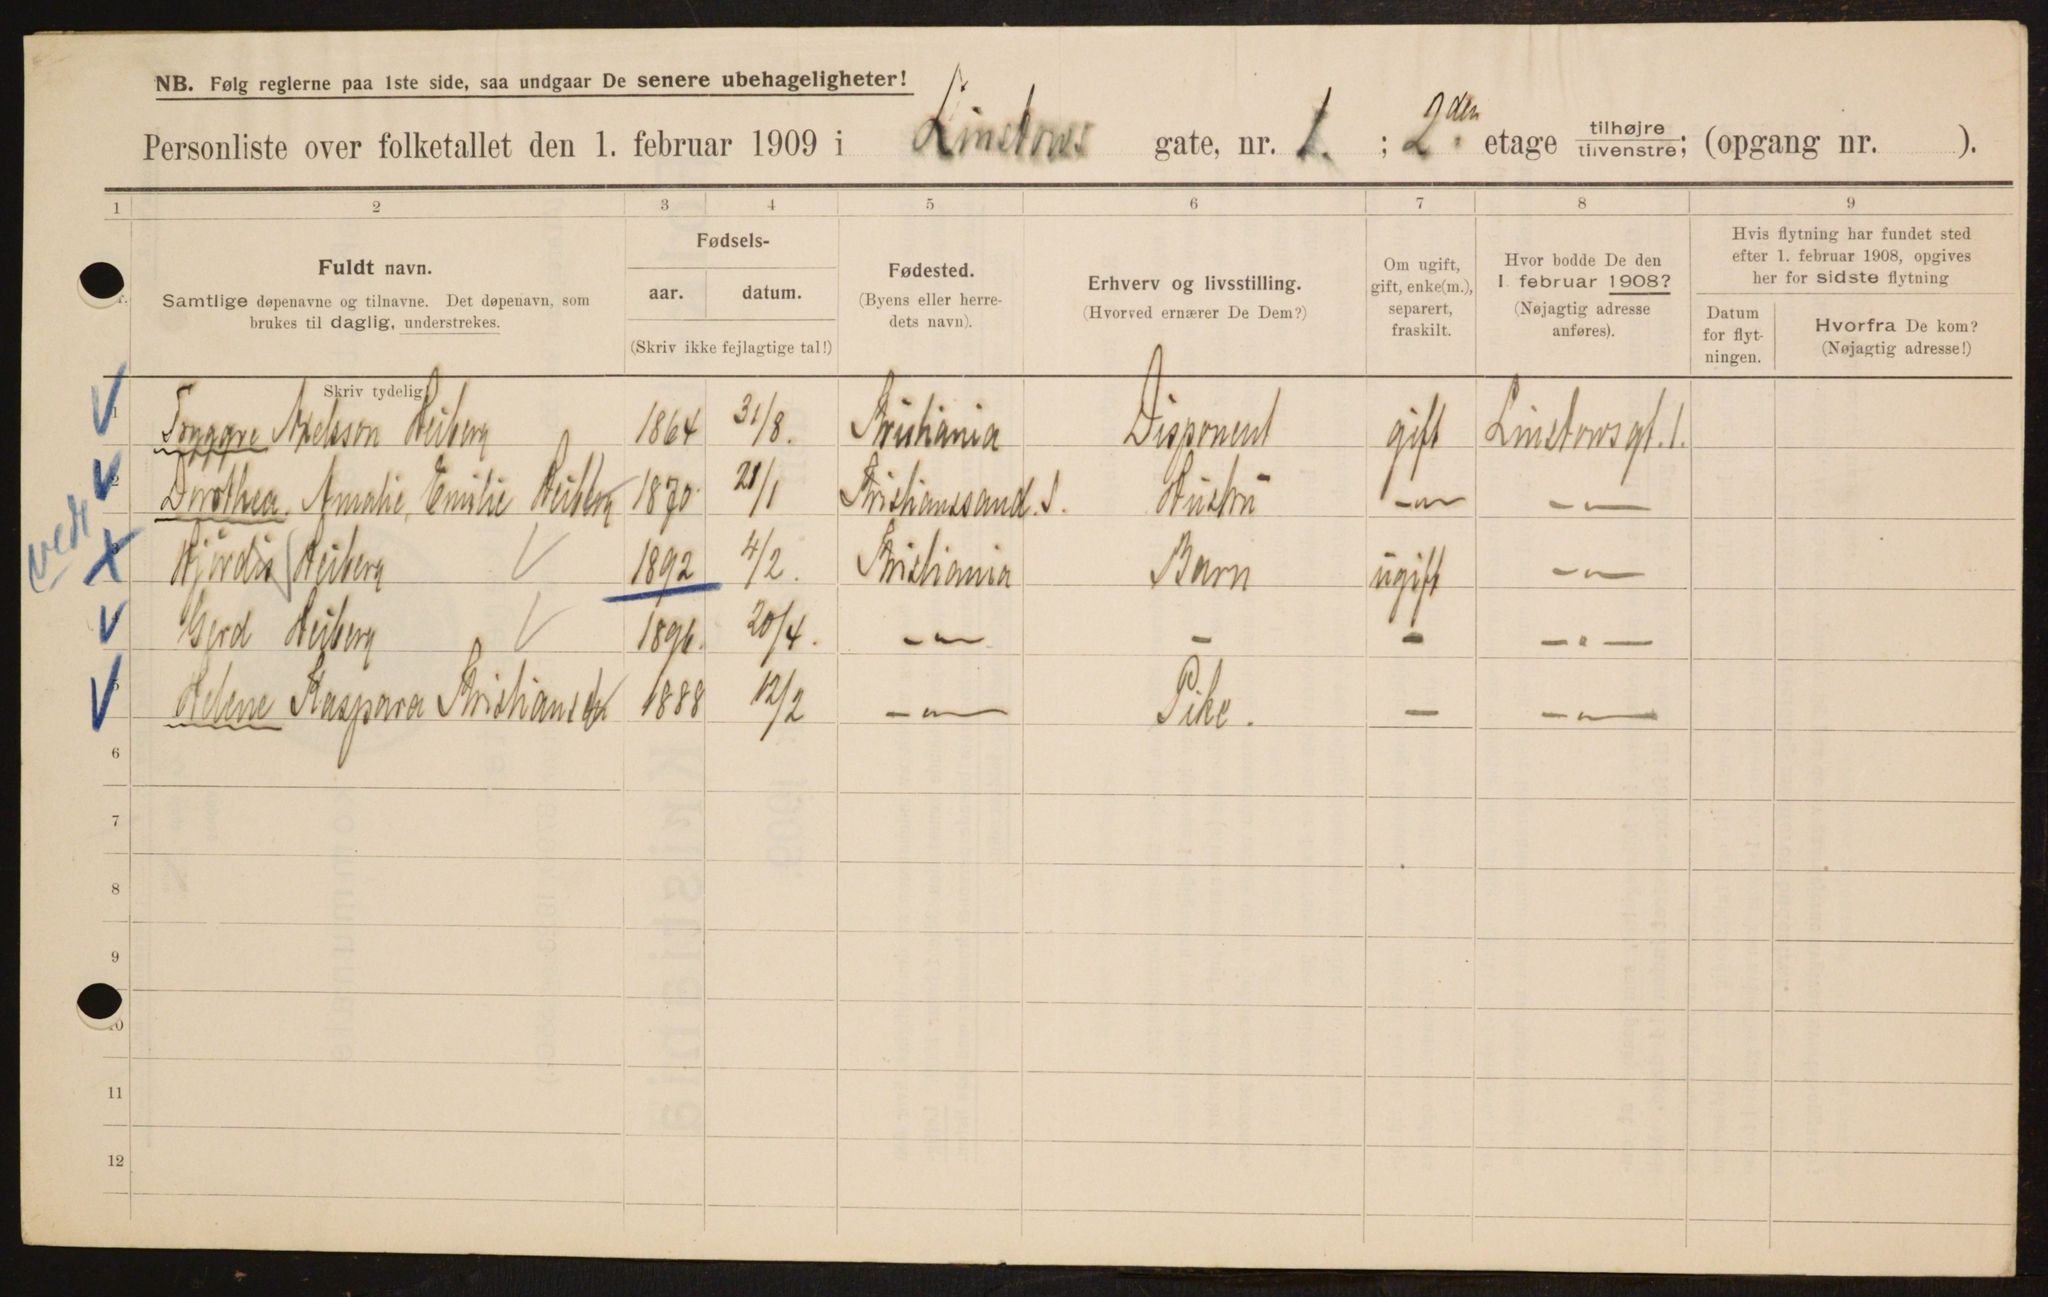 NB. Følg reglerne paa 1ste side, saa undgaar De senere ubehageligheter!
Personliste over folketallet den 1. februar 1909 i Linstows gate, nr. 1. ; 2den etage tilhøjre / tilvenstre; (opgang nr. ).
1 2 3 4 5 6 7 8 9
Fuldt navn.
Samtlige døpenavne og tilnavne. Det døpenavn, som
brukes til daglig, understrekes.
Fødsels-
aar. datum.
(Skriv ikke fejlagtige tal!)
Fødested.
(Byens eller herre-
dets navn).
Erhverv og livsstilling.
(Hvorved ernærer De Dem?)
Om ugift,
gift, enke(m.),
separert,
fraskilt.
Hvor bodde De den
1. februar 1908?
(Nøjagtig adresse
anføres).
Hvis flytning har fundet sted
efter 1. februar 1908, opgives
her for sidste flytning
Datum
for flyt-
ningen.
Hvorfra De kom?
(Nøjagtig adresse!)
Skriv tydelig
1 Tryggve Axelsson Heiberg 1864 31/8. Kristiania Disponent gift Linstowsgt. 1.
2 Dorothea Amalie Emilie Heiberg 1870 21/1 Kristianssand. S. Hustru -"- -"-
Hjørdis Heiberg 1892 4/2. Kristiania Barn ugift -"-
Gerd Heiberg 1896. 20/4. -"- - - -"-
5 Helene Kaspara Kristiansen 1888 12/2 -"- Pike. - -"-
6
7
8
9
10
11
12